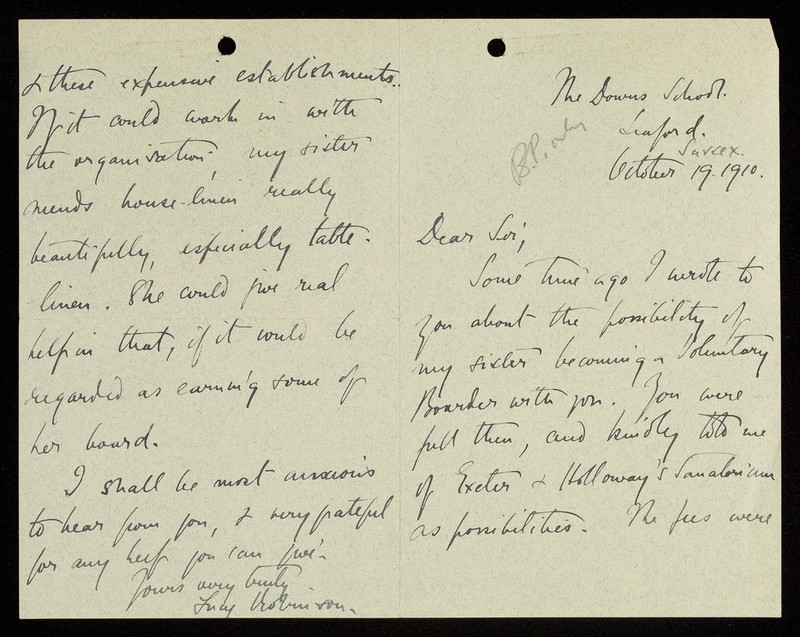 The Downs School.
Seaford.
Sussex.
B.P. only
October 19. 1910.
Dear Sir,
Some time ago I wrote to
you about the possibility of
my sister becoming a Voluntary
Boarder with you. You were
full then, and kindly told me
of Exeter & Holloway's Sanatorium
as possibilities. The fees were
& these expensive establishments.
If it could work in with
the organisation, my sister
mends house-linen really
beautifully, especially table-
-linen. She could give real
help in that, if it could be
regarded as earning some of
her board.
I shall be most anxious
to hear from you, & very grateful
for any help you can give.
Yours very truly
Lucy Robinson.